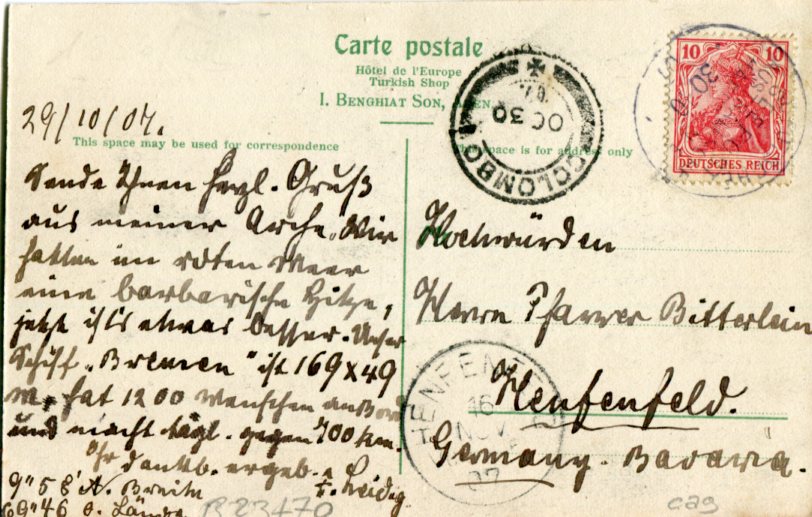 Carte postale
Hôtel de l'Europe
Turkish Shop
I. BENGHIAT SON, ADEN
This space may be used for correspondence
This space is for address only
29/10/07.
Sende Ihnen herzl. Gruß
aus meiner Arche. Wir
hatten im roten Meer
eine barbarische Hitze,
jetzt ist's etwas besser. Unser
Schiff „Bremen" ist 169 x 49
m, hat 1200 Menschen an Bord
und macht tägl. gegen 700 km.
Ihr dankb. ergeb.
9° 58' N. Breite
69° 46 ö. Länge
Hochwürden
Herrn Pfarrer Bitterlein
Henfenfeld.
Germany. Bavaria.
COLOMBO
OC 30
07
10 10
DEUTSCHES REICH
HENFENFELD
16
NOV
07
B 23470
cag